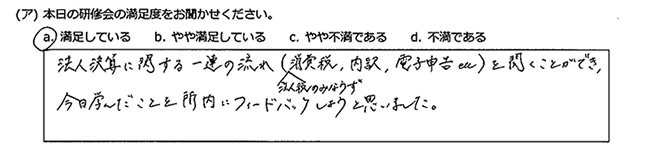 (ア) 本日の研修会の満足度をお聞かせください。
a. 満足している b. やや満足している c. やや不満である d. 不満である
法人決算に関する一連の流れ(消費税, 内訳, 電子申告etc)を聞くことができ,
法人税のみならず
今日学んだことを所内にフィードバックしようと思いました。